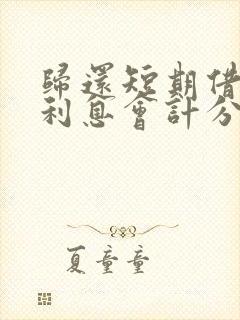 歸還短期借
利息會計分
夏童童